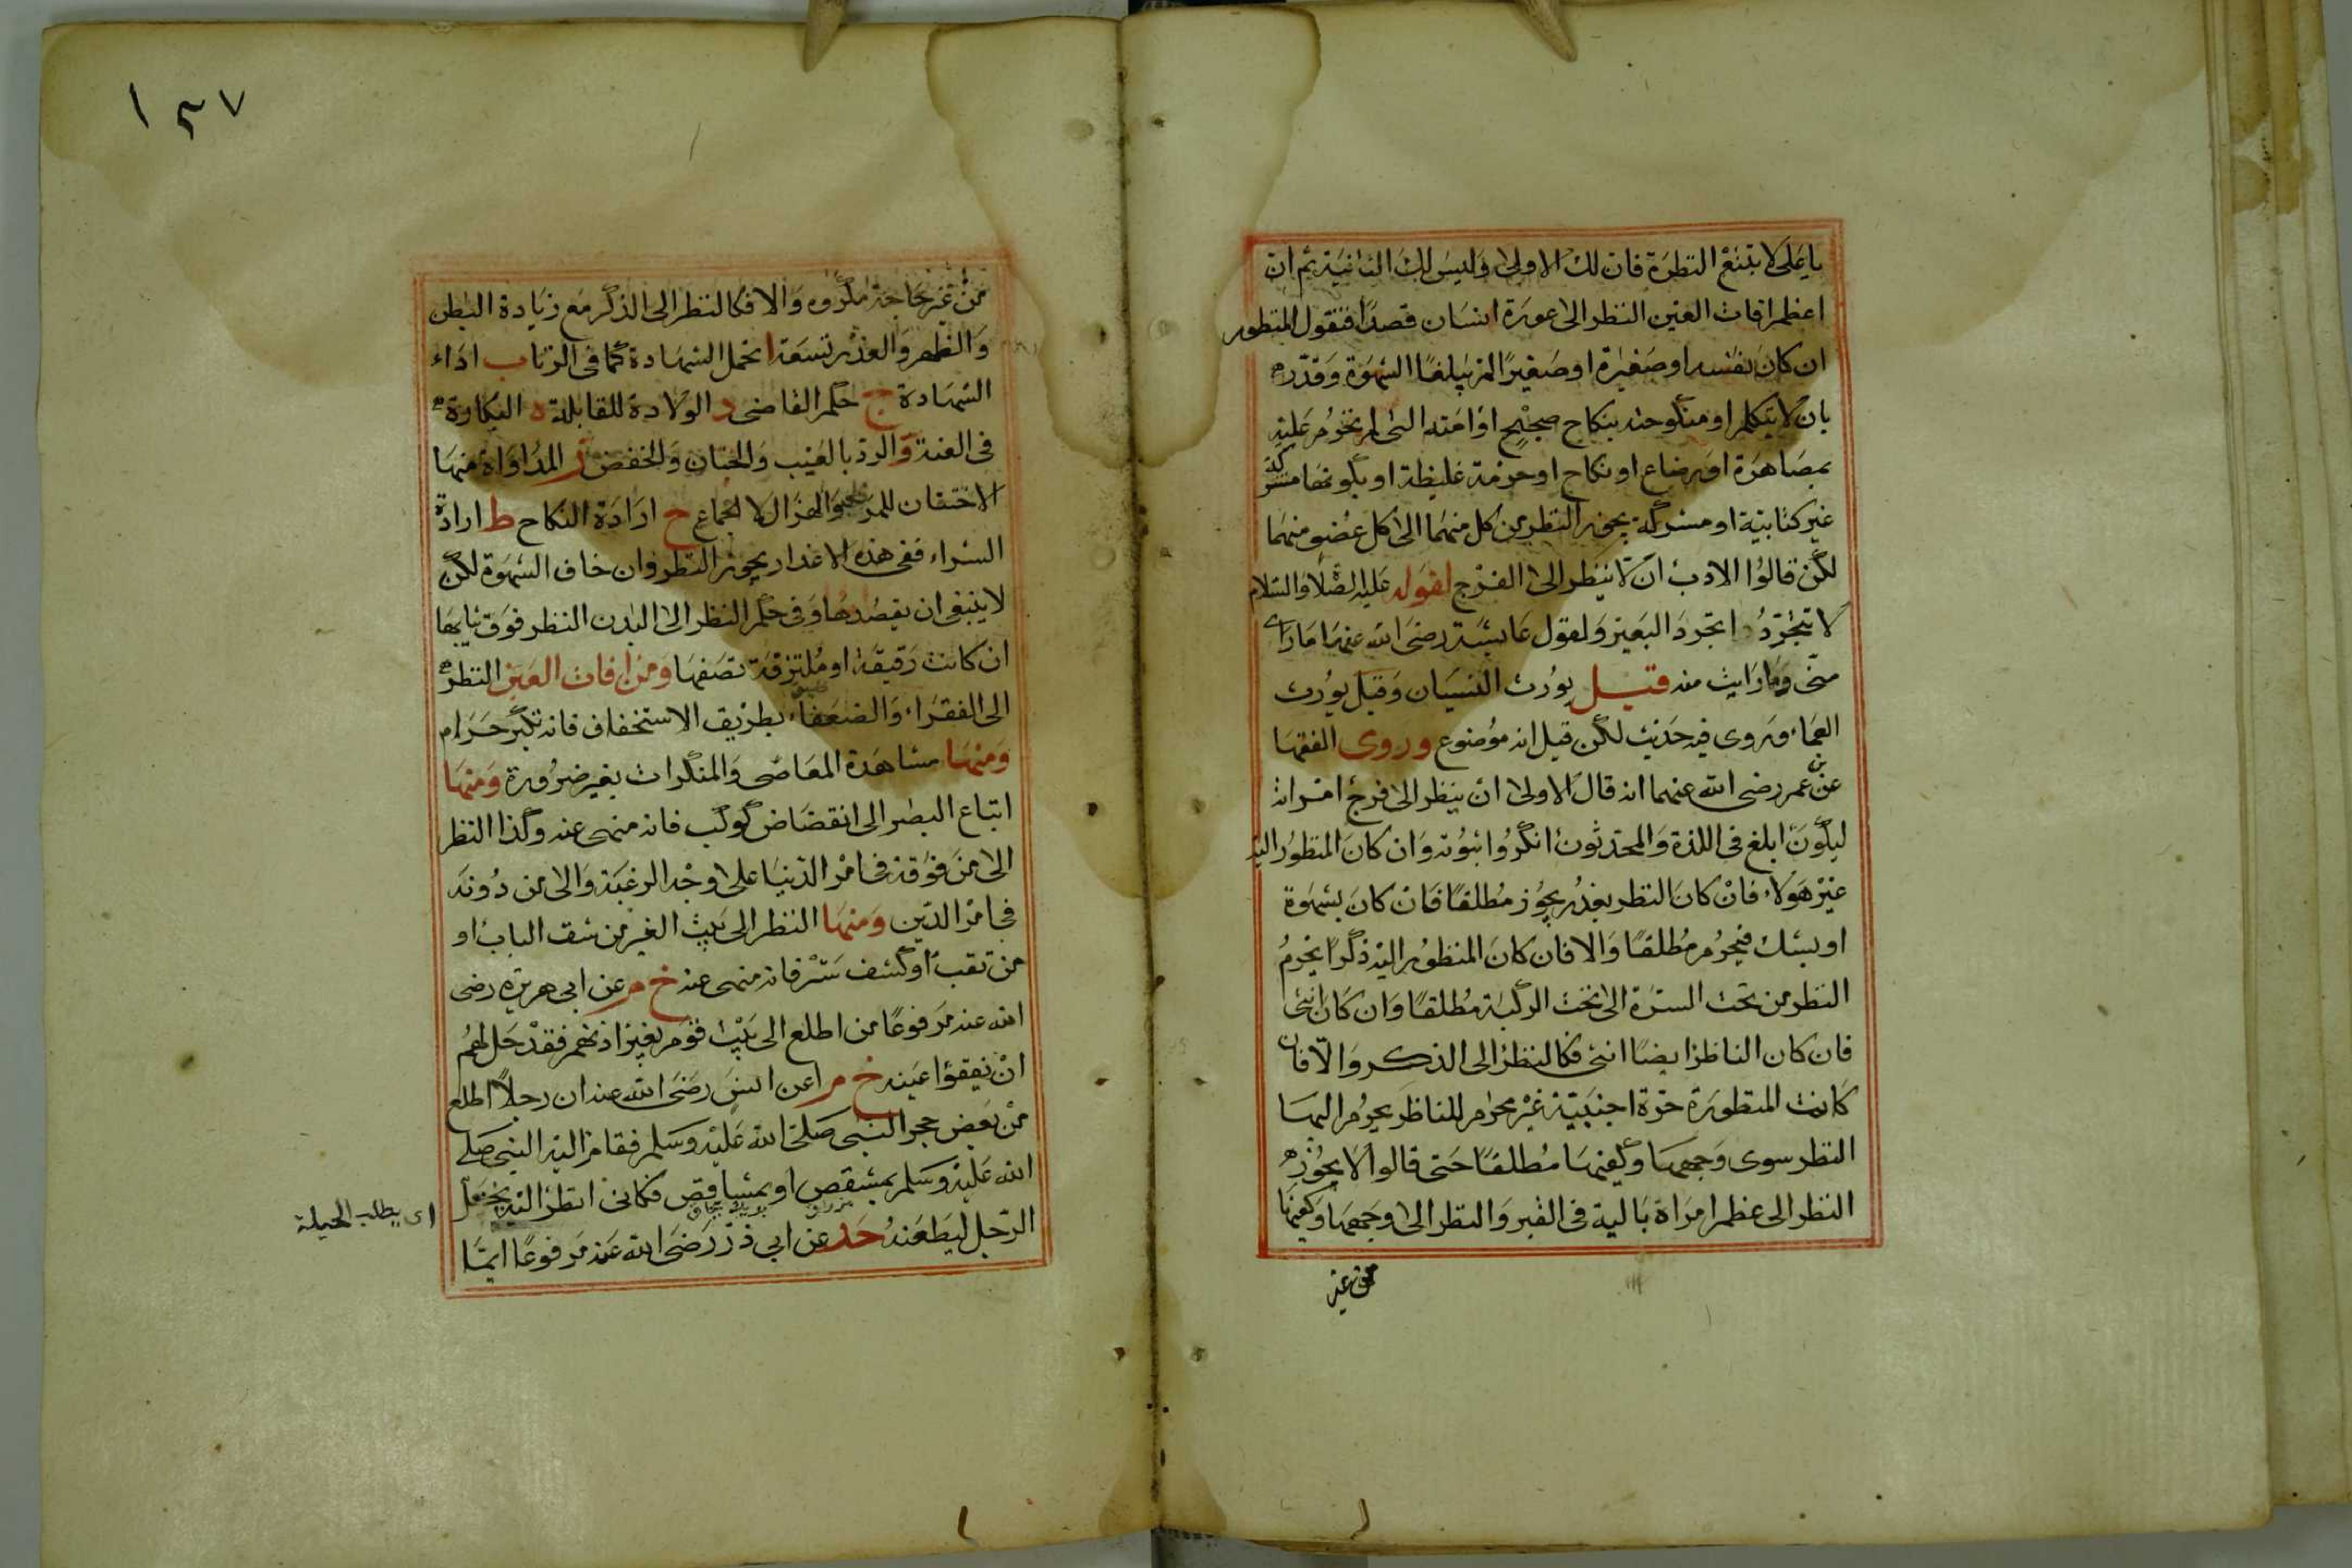 يا على لا تتبع النظرة فان لك الاولى وليس لك الثانية ثم ان
اعظم افات العين النظر الى عورة انسان قصدا فنقول المنظور
ان كان نفسه او صغيرة او صغيرا لم يبلغا الشهوة وقدره
بان لا يتكلم او منكوحته بنكاح صحيح او امته التى لم تحرم عليه
بمصاهرة او رضاع او نكاح او حرمة غليظة او بكونها مشركة
غير كتابية او مشركة يجوز النظر من كل منهما الى كل عضو منهما
لكن قالوا الادب ان لا ينظر الى الفرج لقوله عليه الصلاة والسلام
لا تتجردا تجرد البعير ولقول عائشة رضى الله عنها ما راى
منى وما رايت منه قيل يورث النسيان وقيل يورث
العماء وروى فيه حديث لكن قيل انه موضوع وروى الفقها
عن بن عمر رضى الله عنهما انه قال الاولى ان ينظر الى فرج امراته
ليكون ابلغ فى اللذة والمحدثون انكروا ثبوته وان كان المنظور اليه
غير هولاء فان كان النظر بعذر يجوز مطلقا فان كان بشهوة
او بشك فيحرم مطلقا والا فان كان المنظور اليه ذكرا يحرم
النظر من تحت السترة الى تحت الركبة مطلقا وان كان انثى
فان كان الناظر ايضا انثى فكالنظر الى الذكر والا فان
كانت المنظورة حرة اجنبية غير محرم للناظر يحرم اليها
النظر سوى وجهها وكفيها مطلقا حتى قالوا لا يجوز
النظر الى عظم امراة بالية فى القبر والنظر الى وجهها وكفيها
من غير
١٥٧
من غير حاجة مكروه والا فكالنظر الى الذكر مع زيادة البطن
والظهر والعذر تسعة ا تحمل الشهادة كما فى الزنا ب اداء
الشهادة ج حكم القاضى د الولادة للقابلة ه البكارة
فى العنة و الرد بالعيب والختان والخفض ز المداواة منها
الاحتقان للمرض والهزال لا للجماع ح ارادة النكاح ط ارادة
الشراء ففى هذه الاعذار يجوز النظر وان خاف الشهوة لكن
لا ينبغى ان يقصدها وفى حكم النظر الى البدن النظر فوق ثيابها
ان كانت رقيقة او ملتزقة تصفها ومن افات العين النظر
الى الفقراء والضعفاء بطريق الاستخفاف فانه تكبر حرام
ومنها مشاهدة المعاصى والمنكرات بغير ضرورة ومنها
اتباع البصر الى انقضاض كوكب فانه منهى عنه وكذا النظر
الى من فوقه فى امر الدنيا على وجه الرغبة والى من دونه
فى امر الدين ومنها النظر الى بيت الغير من شق الباب او
من ثقب او كشف ستر فانه منهى عنه خ م عن ابى هريرة رضى
الله عنه مرفوعا من اطلع الى بيت قوم بغير اذنهم فقد حل لهم
ان يفقؤا عينه خ م عن انس رضى الله عنه ان رجلا اطلع
من بعض حجر النبى صلى الله عليه وسلم فقام اليه النبى صلى
الله عليه وسلم بمشقص او بمشاقص فكانى انظر اليه يختل
الرجل ليطعنه حد عن ابى ذر رضى الله عنه مرفوعا ايما
اى يطلب الحيلة